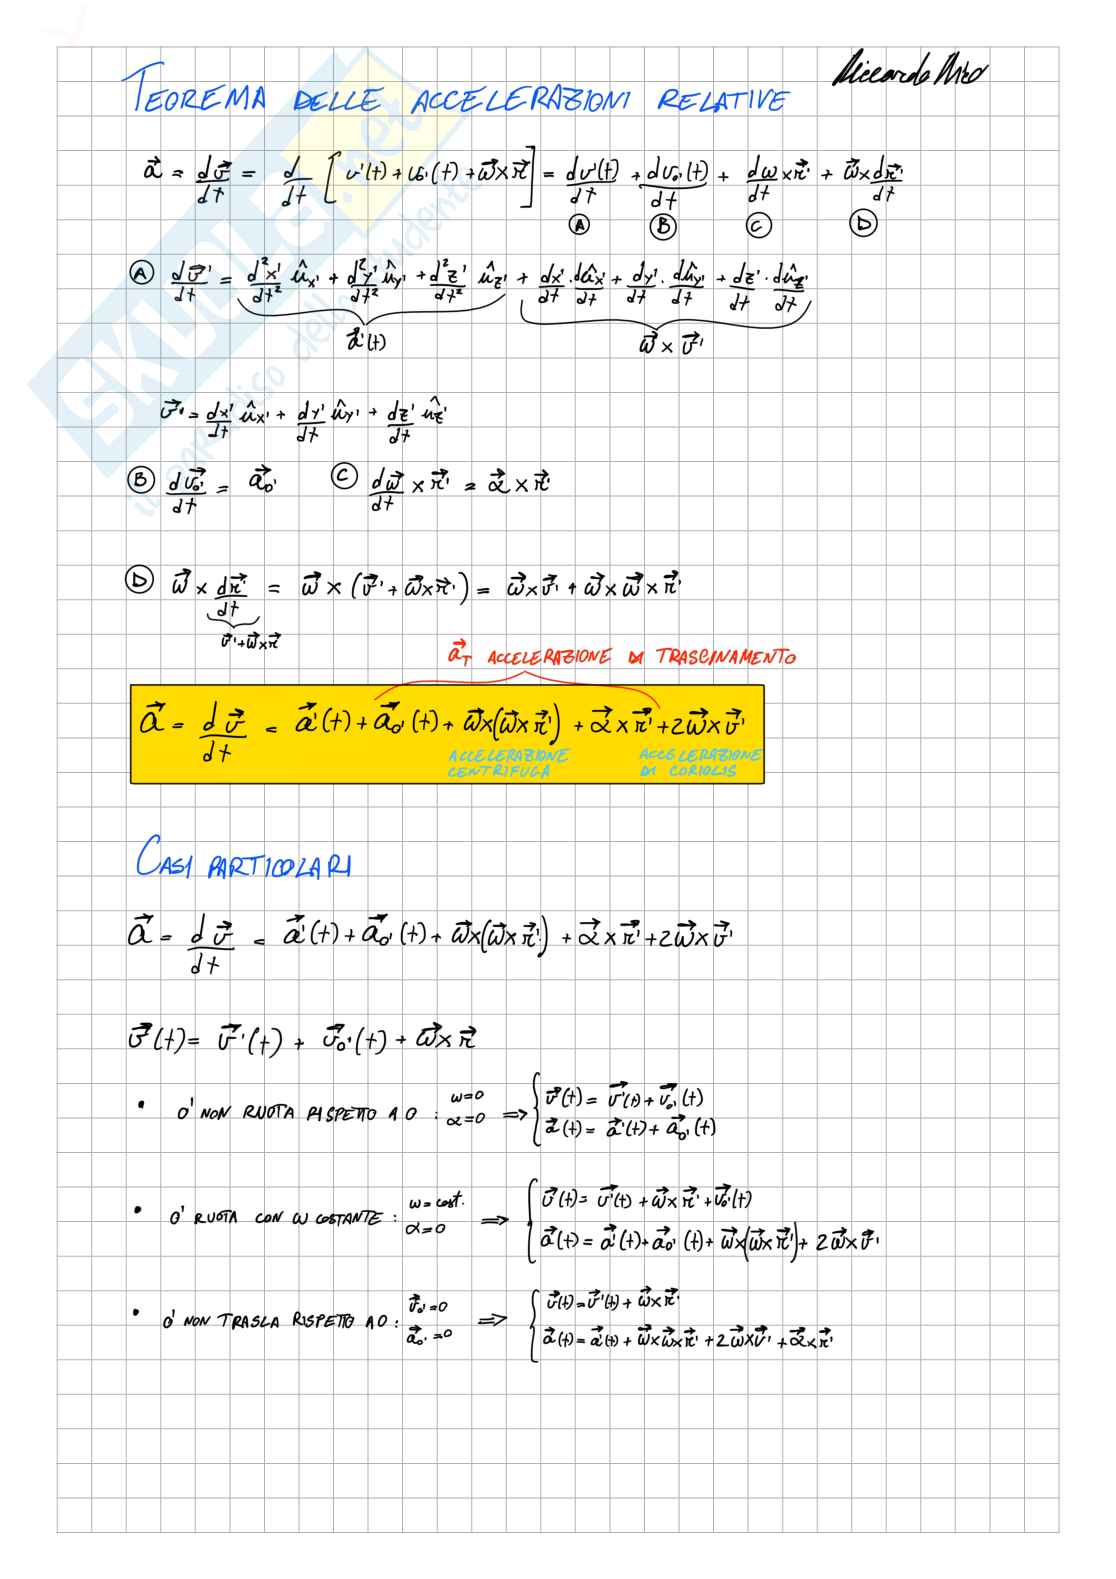 Riccardo
TEOREMA DELLE ACCELERAZIONI RELATIVE
a⃗ = dv⃗/dt = d/dt [v'(t) + v₀'(t) + ω⃗×r⃗'] = dv'(t)/dt + dv₀'(t)/dt + dω/dt × r⃗' + ω⃗ × dr⃗'/dt
A B C D
A dv⃗'/dt = d²x'/dt² û_x' + d²y'/dt² û_y' + d²z'/dt² û_z' + dx'/dt · dû_x'/dt + dy'/dt · dû_y'/dt + dz'/dt · dû_z'/dt
a⃗'(t) ω⃗ × v⃗'
v⃗' = dx'/dt û_x' + dy'/dt û_y' + dz'/dt û_z'
B dv⃗₀'/dt = a⃗₀' C dω⃗/dt × r⃗' = α⃗ × r⃗'
D ω⃗ × dr⃗'/dt = ω⃗ × (v⃗' + ω⃗×r⃗') = ω⃗×v⃗' + ω⃗×ω⃗×r⃗'
v⃗' + ω⃗×r⃗
a⃗_T ACCELERAZIONE DI TRASCINAMENTO
a⃗ = dv⃗/dt = a⃗'(t) + a⃗₀'(t) + ω⃗×(ω⃗×r⃗') + α⃗×r⃗' + 2ω⃗×v⃗'
ACCELERAZIONE CENTRIFUGA ACCELERAZIONE DI CORIOLIS
CASI PARTICOLARI
a⃗ = dv⃗/dt = a⃗'(t) + a⃗₀'(t) + ω⃗×(ω⃗×r⃗') + α⃗×r⃗' + 2ω⃗×v⃗'
v⃗(t) = v⃗'(t) + v⃗₀'(t) + ω⃗×r⃗
• O' NON RUOTA RISPETTO A O : ω=0 α=0 ⇒ { v⃗(t) = v⃗'(t) + v⃗₀'(t)
a⃗(t) = a⃗'(t) + a⃗₀'(t)
• O' RUOTA CON ω COSTANTE : ω=cost. α=0 ⇒ { v⃗(t) = v⃗'(t) + ω⃗×r⃗' + v⃗₀'(t)
a⃗(t) = a⃗'(t) + a⃗₀'(t) + ω⃗×(ω⃗×r⃗') + 2ω⃗×v⃗'
• O' NON TRASLA RISPETTO A O : v⃗₀'=0 a⃗₀'=0 ⇒ { v⃗(t) = v⃗'(t) + ω⃗×r⃗'
a⃗(t) = a⃗'(t) + ω⃗×ω⃗×r⃗' + 2ω⃗×v⃗' + α⃗×r⃗'
SKUOLA.net